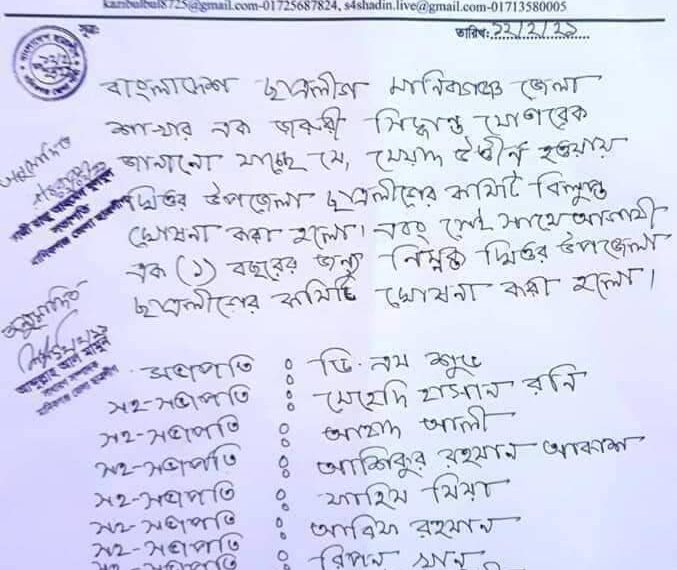 kanbulbul8725@gmail.com-01725687824, s4shadin.live@gmail.com-01713580005
সূত্র:
তারিখ: ১২/২/২১
বাংলাদেশ ছাত্রলীগ মানিকগঞ্জ জেলা
শাখার এক জরুরী সিদ্ধান্ত মোতাবেক
জানানো যাচ্ছে যে, মেয়াদ উত্তীর্ন হওয়ায়
ঘিওর উপজেলা ছাত্রলীগের কমিটি বিলুপ্ত
ঘোষনা করা হলো। এবং সেই সাথে আগামী
এক (১) বছরের জন্য নিম্নক্ত ঘিওর উপজেলা
ছাত্রলীগের কমিটি ঘোষনা করা হলো।
অনুমোদিত
অনুমোদিত
সভাপতি : ভি. এম শুভ
সহ-সভাপতি : মেহেদি হাসান রনি
সহ-সভাপতি : আহাদ আলী
সহ-সভাপতি : আশিকুর রহমান আকাশ
সহ-সভাপতি : ফাহিম মিয়া
সহ-সভাপতি : আরিফ রহমান
সহ-সভাপতি : রিপন খান